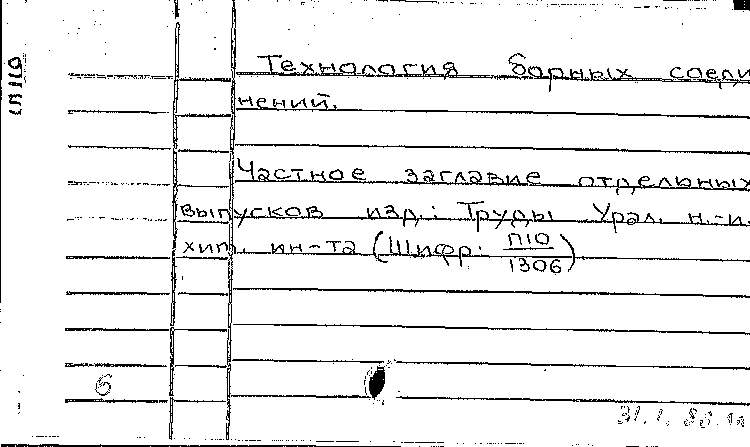 Технология борных соеди
нений.
Частное заглавие отдельных
выпусков изд.: Труды Урал. н.-и.
хим. ин-та (Шифр: П10
1306)
6